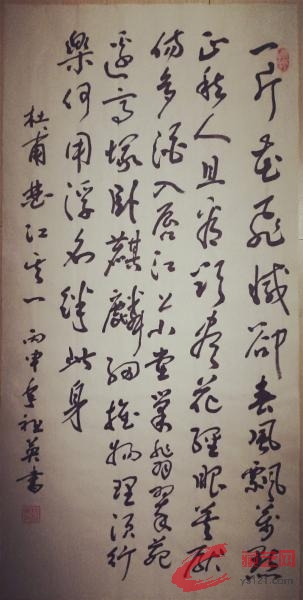 一片花飛減卻春風飄萬點
正愁人且看欲盡花經眼莫厭
傷多酒入唇江上小堂巢翡翠苑
邊高塚卧麒麟細推物理須行
樂何用浮名絆此身
杜甫江其一丙申年祖英書